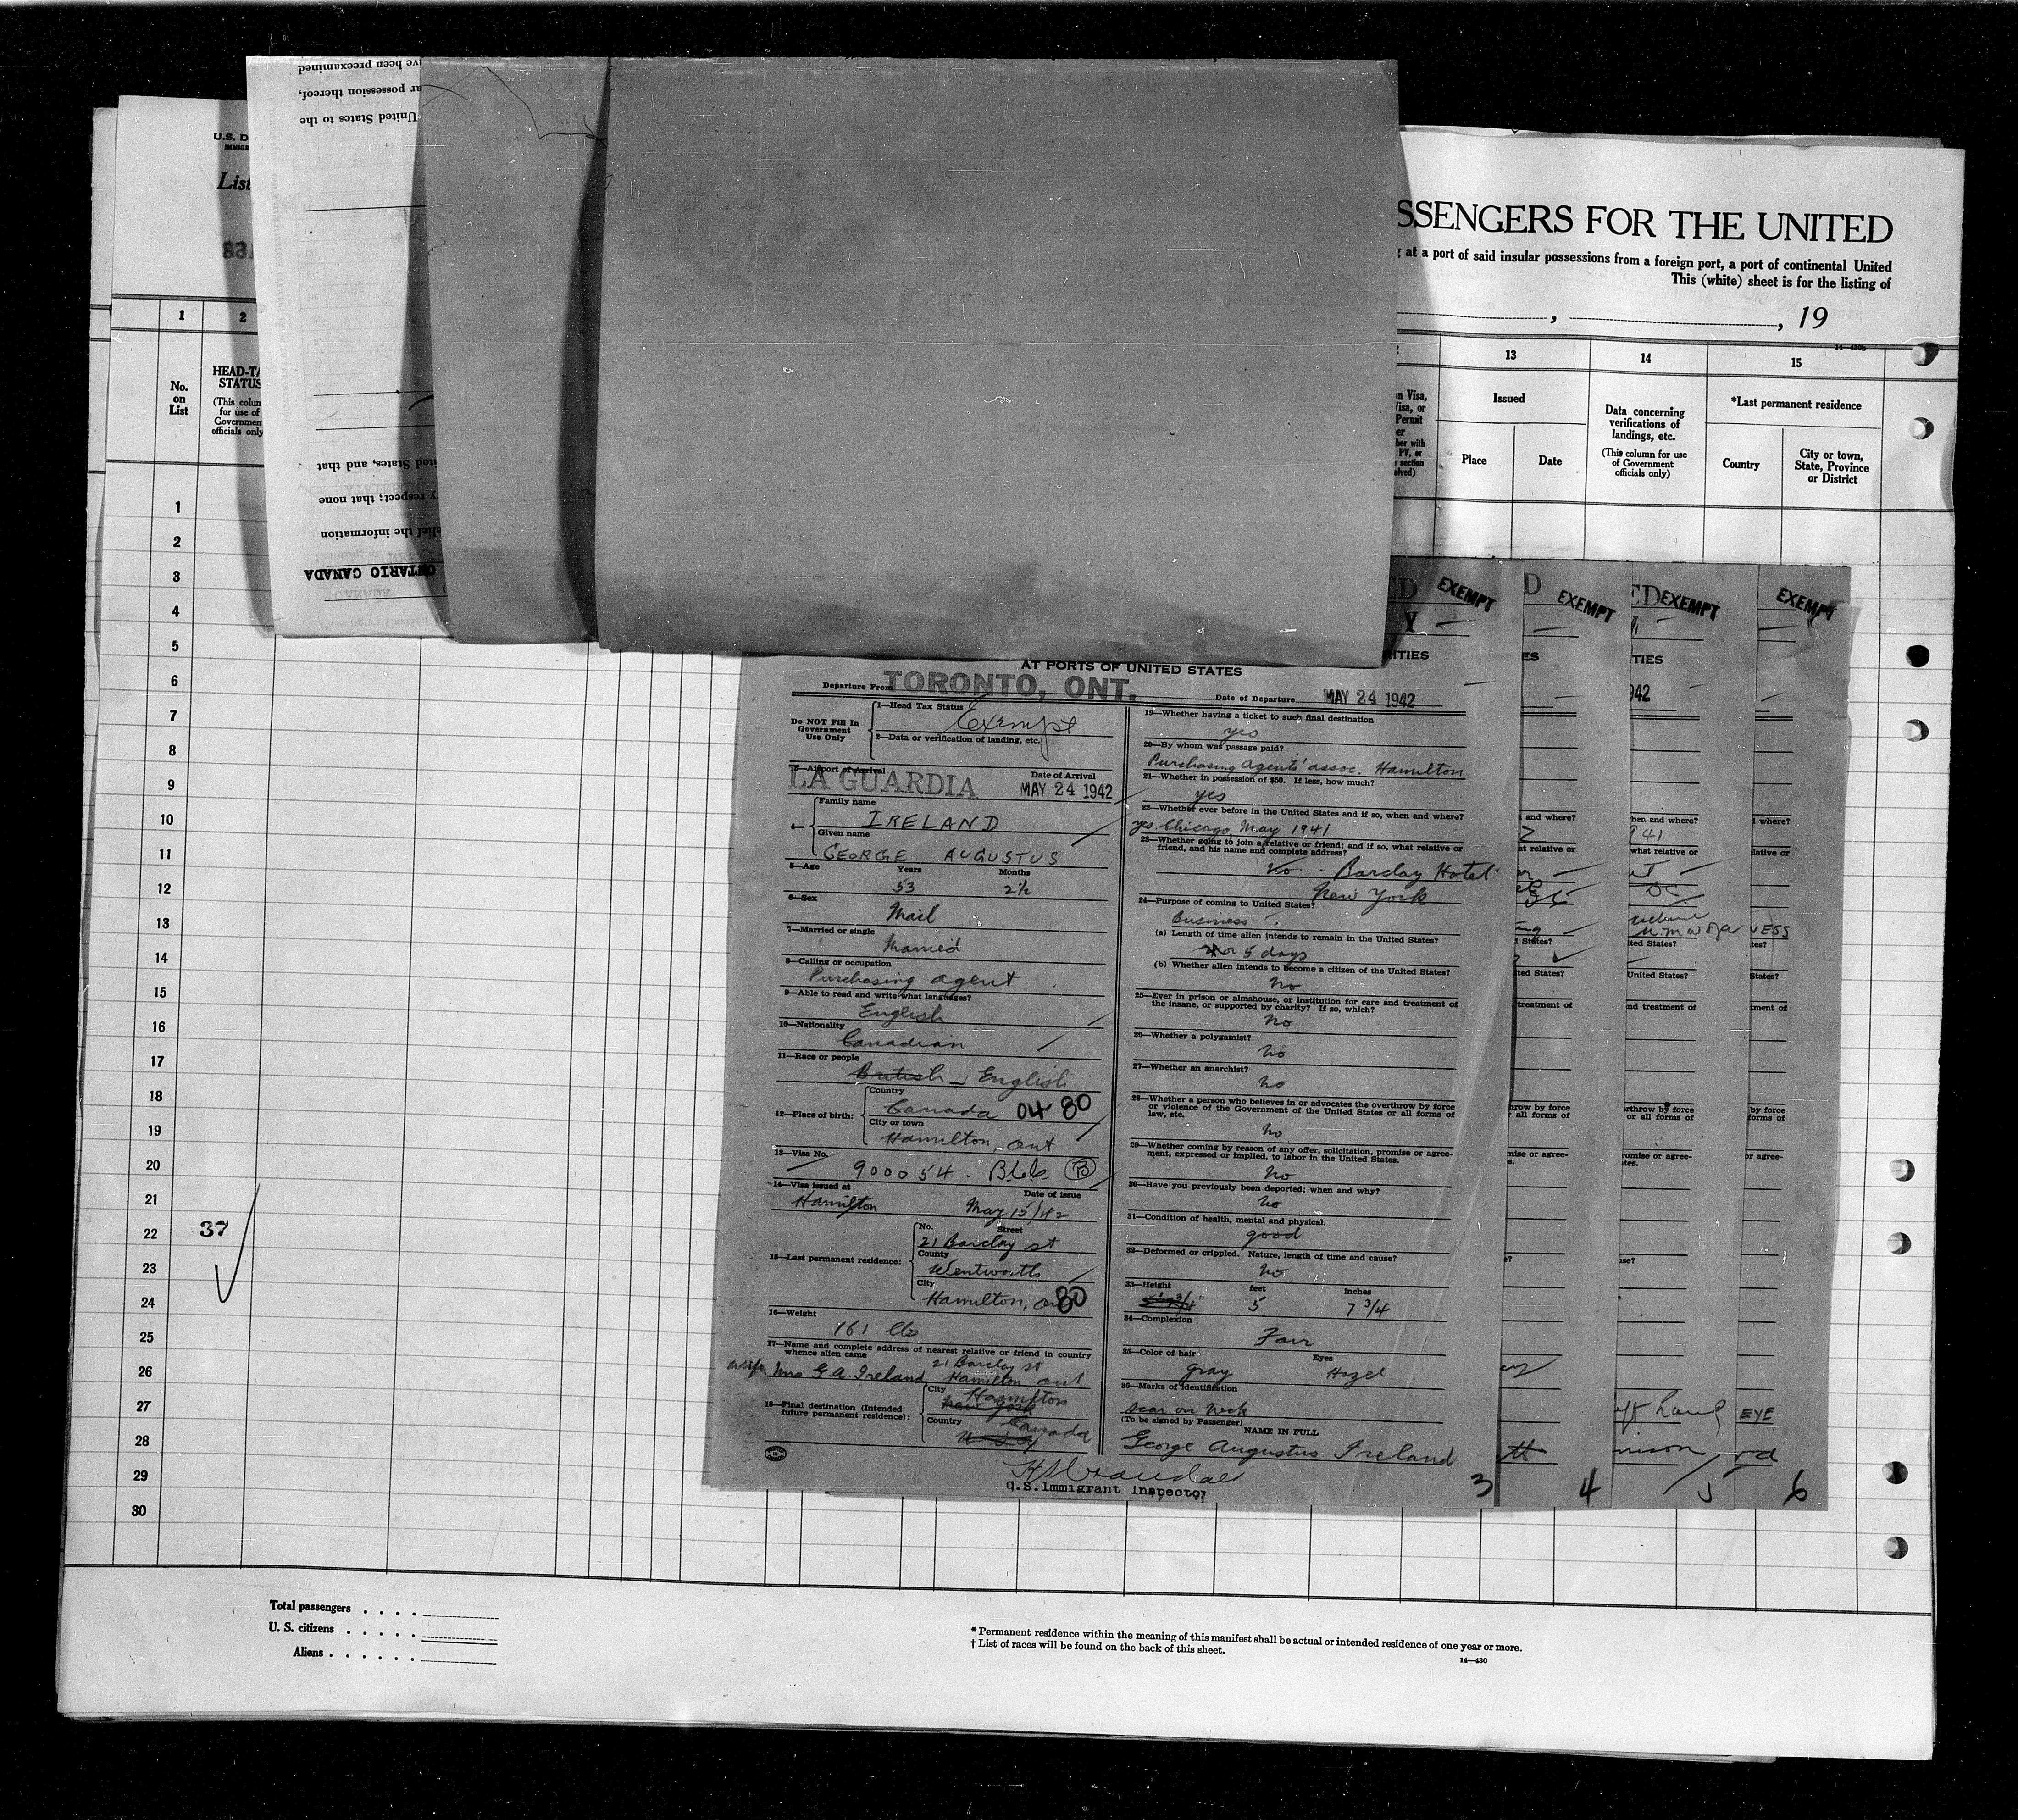 ve been preexamined
ar possession thereof,
United States to the
ited States, and that
y respect; that none
elief the information
ONTARIO CANADA
CANADA
U.S. D
IMMIGR
List
SSENGERS FOR THE UNITED
g at a port of said insular possessions from a foreign port, a port of continental United
This (white) sheet is for the listing of
, 19
1
2
13
14
15
No.
on
List
HEAD-TA
STATUS
(This colum
for use of
Governmen
officials only
n Visa,
Visa, or
Permit
er
ber with
PV, or
section
lved)
Issued
Place
Date
Data concerning
verifications of
landings, etc.
(This column for use
of Government
officials only)
*Last permanent residence
Country
City or town,
State, Province
or District
1
2
3
4
5
6
7
8
9
10
11
12
13
14
15
16
17
18
19
20
21
22
23
24
25
26
27
28
29
30
37
AT PORTS OF UNITED STATES
Departure From TORONTO, ONT.
Date of Departure MAY 24 1942
Do NOT Fill In
Government
Use Only
1—Head Tax Status
Exempt
2—Data or verification of landing, etc.
3—Airport of Arrival
LA GUARDIA
Date of Arrival
MAY 24 1942
4—
Family name
IRELAND
Given name
GEORGE AUGUSTUS
5—Age
Years
Months
53
2½
6—Sex
Mail
7—Married or single
Married
8—Calling or occupation
Purchasing agent
9—Able to read and write what languages?
English
10—Nationality
Canadian
11—Race or people
British — English
12—Place of birth:
Country
Canada 04 80
City or town
Hamilton, Ont
13—Visa No.
900054. B66 B
14—Visa issued at
Date of issue
Hamilton May 15/42
15—Last permanent residence:
No.
Street
21 Barclay st
County
Wentworth
City
Hamilton, Ont 80
16—Weight
161 lbs
17—Name and complete address of nearest relative or friend in country
whence alien came
wife Mrs G.A. Ireland 21 Barclay st
Hamilton Ont
18—Final destination (Intended
future permanent residence):
City
Hamilton
New York
Country
Canada
19—Whether having a ticket to such final destination
yes
20—By whom was passage paid?
Purchasing Agents' assoc. Hamilton
21—Whether in possession of $50. If less, how much?
yes
22—Whether ever before in the United States and if so, when and where?
yes. Chicago, May 1941
23—Whether going to join a relative or friend; and if so, what relative or
friend, and his name and complete address?
No. - Barclay Hotel
New York
24—Purpose of coming to United States?
Business
(a) Length of time alien intends to remain in the United States?
4 or 5 days
(b) Whether alien intends to become a citizen of the United States?
No
25—Ever in prison or almshouse, or institution for care and treatment of
the insane, or supported by charity? If so, which?
No
26—Whether a polygamist?
No
27—Whether an anarchist?
No
28—Whether a person who believes in or advocates the overthrow by force
or violence of the Government of the United States or all forms of
law, etc.
No
29—Whether coming by reason of any offer, solicitation, promise or agree-
ment, expressed or implied, to labor in the United States.
No
30—Have you previously been deported; when and why?
No
31—Condition of health, mental and physical.
good
32—Deformed or crippled. Nature, length of time and cause?
No
33—Height
feet
inches
5
7 3/4
34—Complexion
Fair
35—Color of hair
Eyes
gray
Hazel
36—Marks of identification
scar on neck
(To be signed by Passenger)
NAME IN FULL
George Augustus Ireland
U.S. Immigrant Inspector
3
ED EXEMPT
Y
RITIES
D EXEMPT
ES
ED EXEMPT
TIES
942
EXEMPT
and where?
at relative or
States?
ted States?
treatment of
hrow by force
all forms of
mise or agree-
4
hen and where?
941
what relative or
DC
ited States?
United States?
nd treatment of
rthrow by force
or all forms of
romise or agree-
tes.
5
d where?
lative or
NESS
tes?
States?
ment of
by force
forms of
or agree-
EYE
rd
6
Total passengers . . . .
U. S. citizens . . . . .
Aliens . . . . . .
* Permanent residence within the meaning of this manifest shall be actual or intended residence of one year or more.
† List of races will be found on the back of this sheet.
14—430